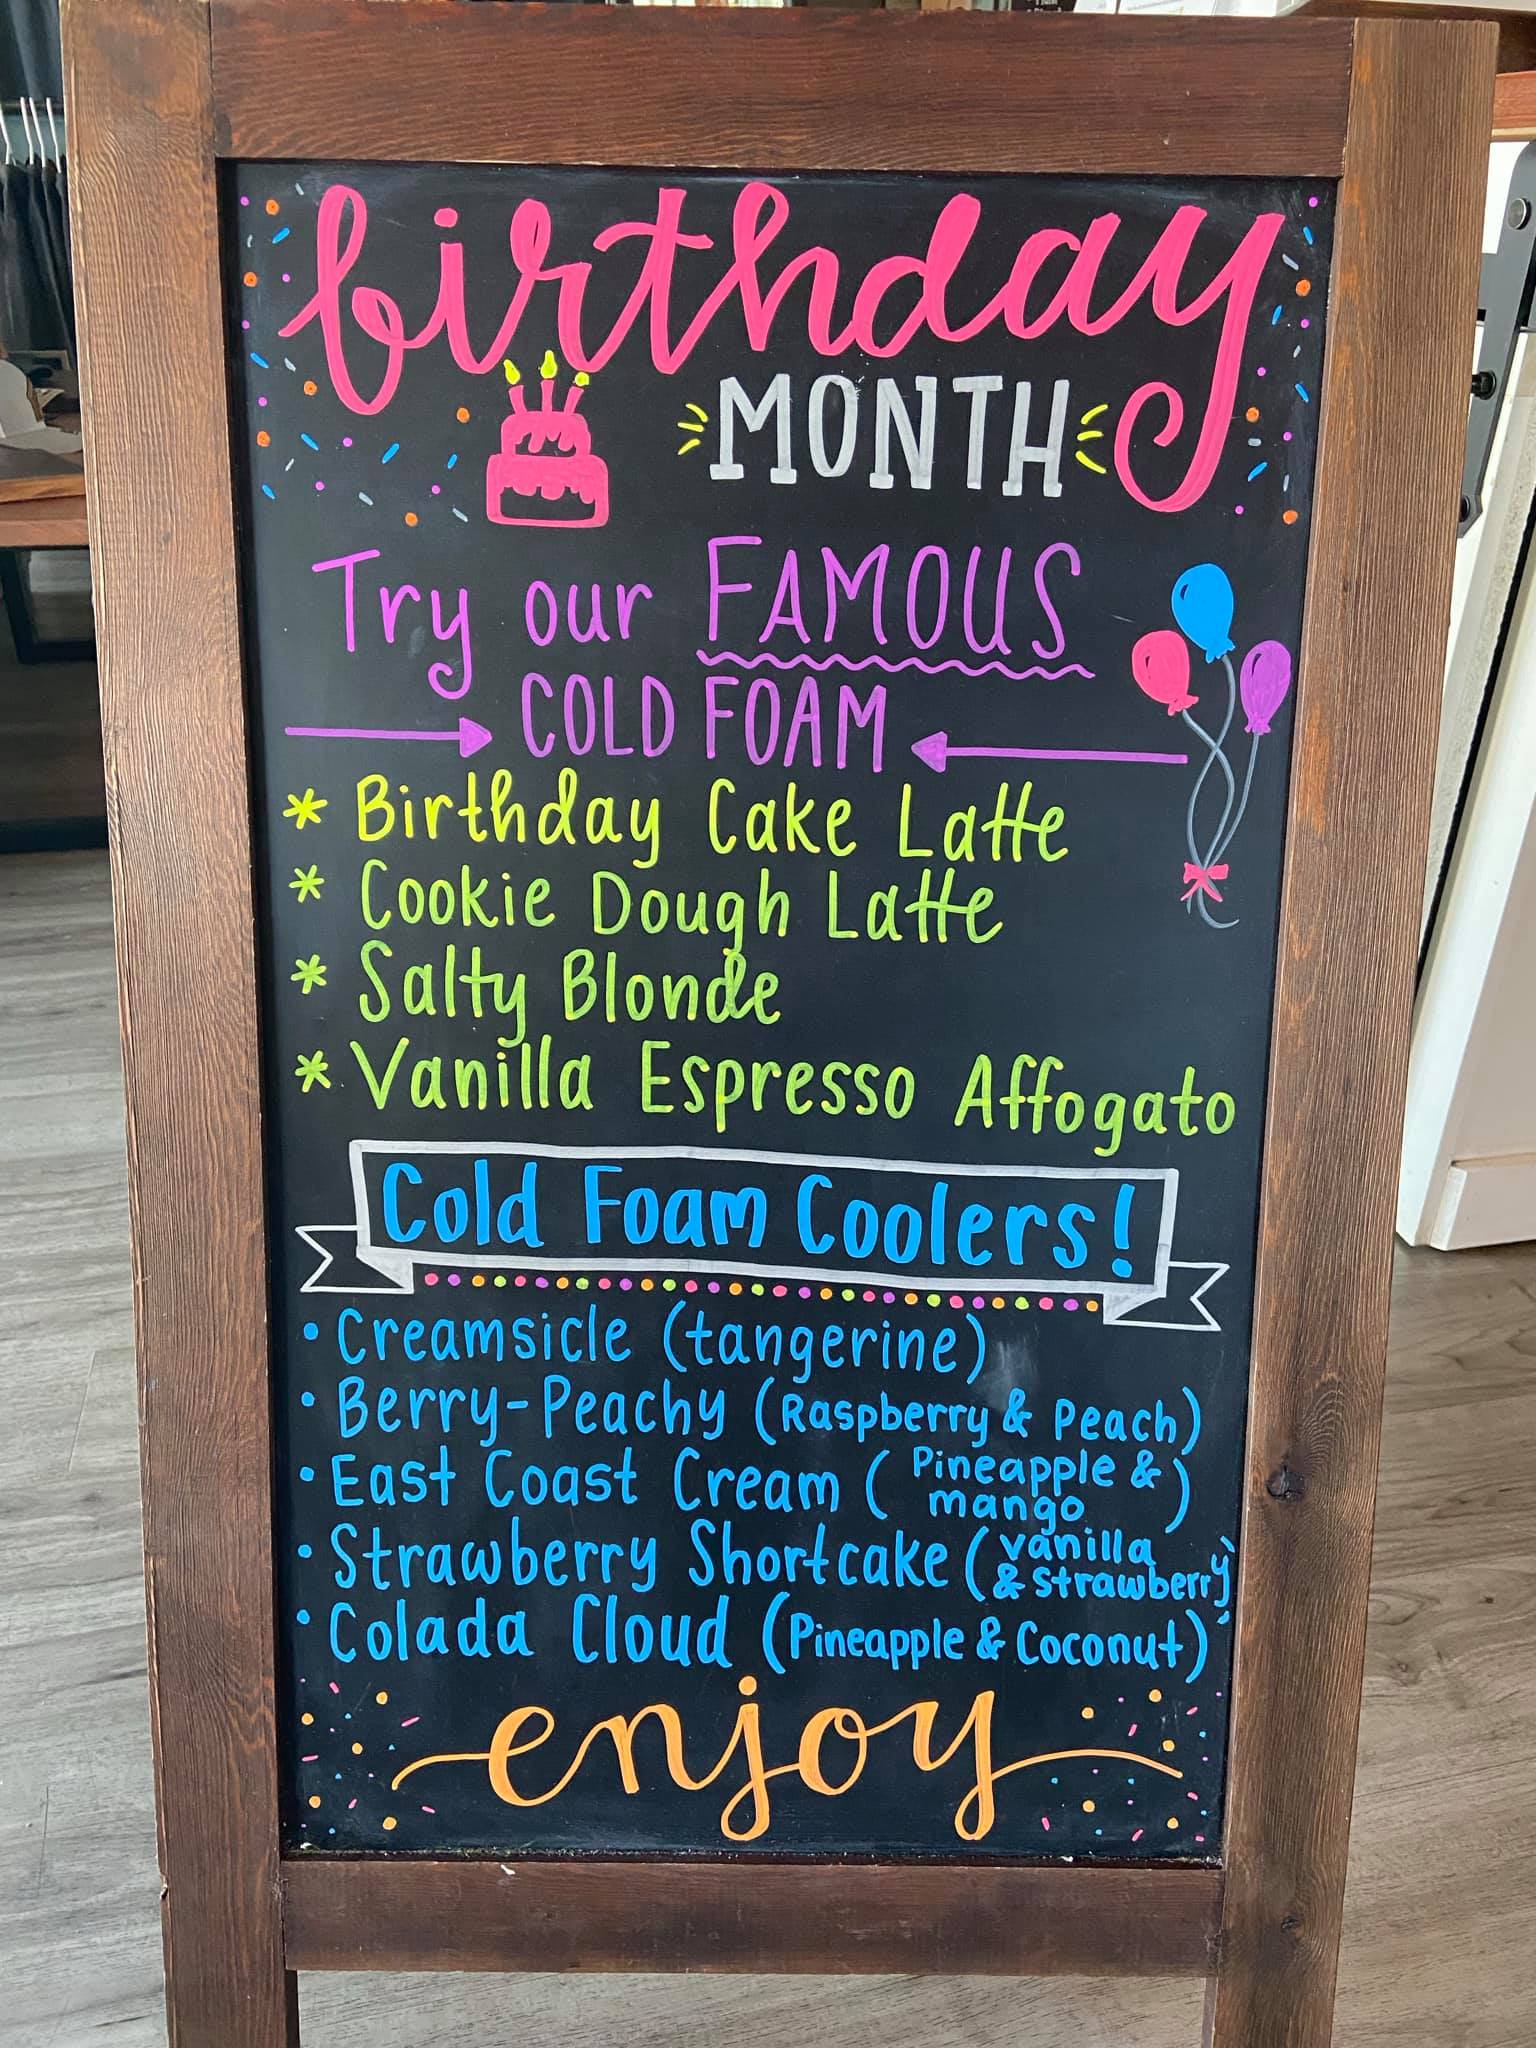 birthday
MONTH
Try our FAMOUS
COLD FOAM
* Birthday Cake Latte
* Cookie Dough Latte
* Salty Blonde
* Vanilla Espresso Affogato
Cold Foam Coolers!
• Creamsicle (tangerine)
• Berry-Peachy (Raspberry & Peach)
• East Coast Cream (Pineapple &
mango)
• Strawberry Shortcake (vanilla
& strawberry)
• Colada Cloud (Pineapple & Coconut)
enjoy